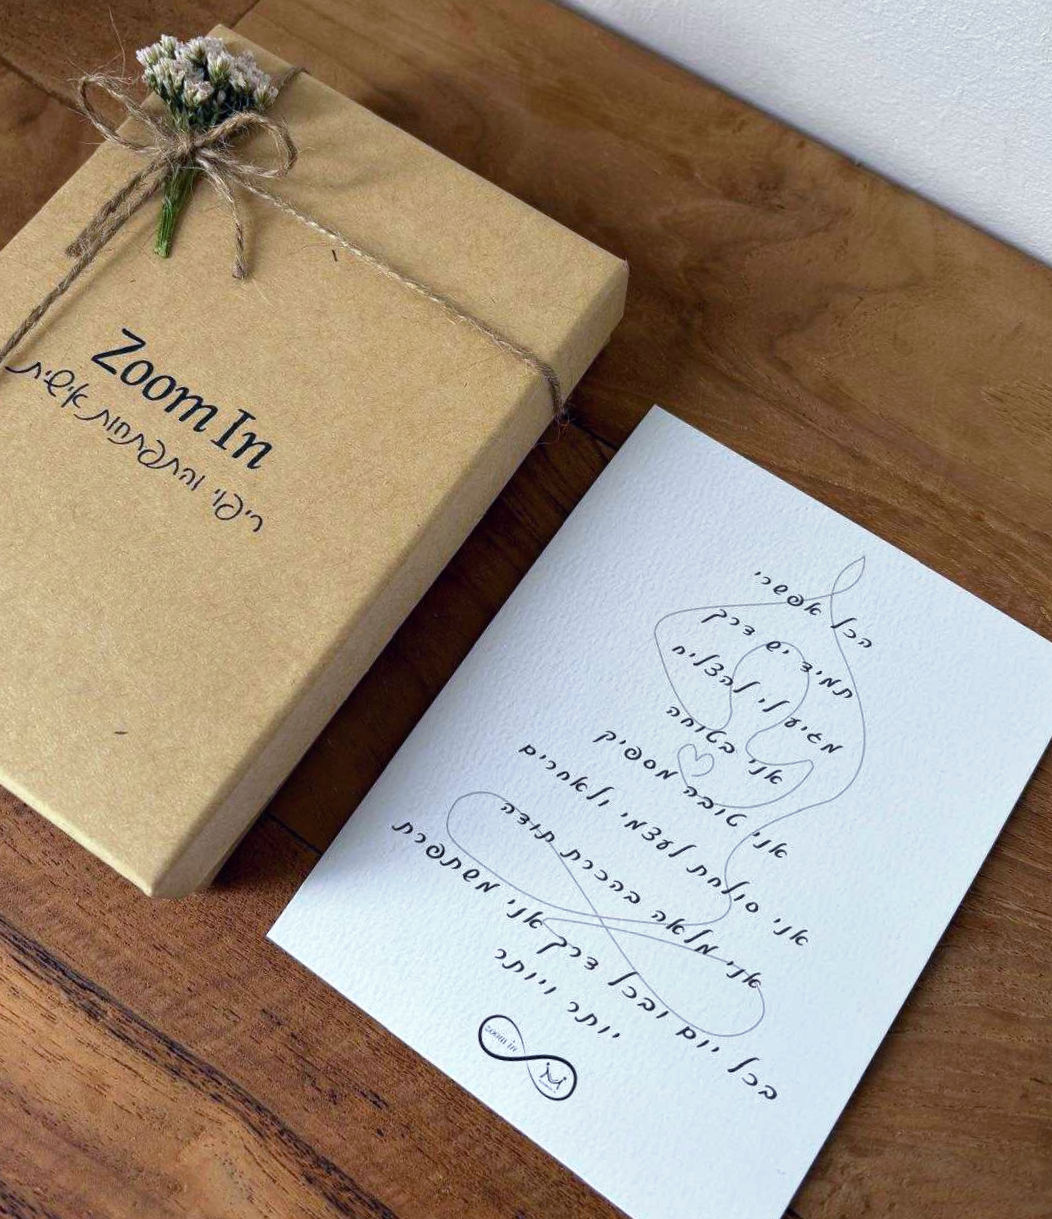 Zoom In
ריפוי והתפתחות אישית
הכל אפשרי
תמיד יש דרך
מגיע לי להצליח
אני בטוחה
אני טובה מספיק
אני סולחת לעצמי ולאחרים
אני מלאה בהכרת תודה
בכל יום ובכל דרך אני משתפרת
יותר ויותר
zoom in